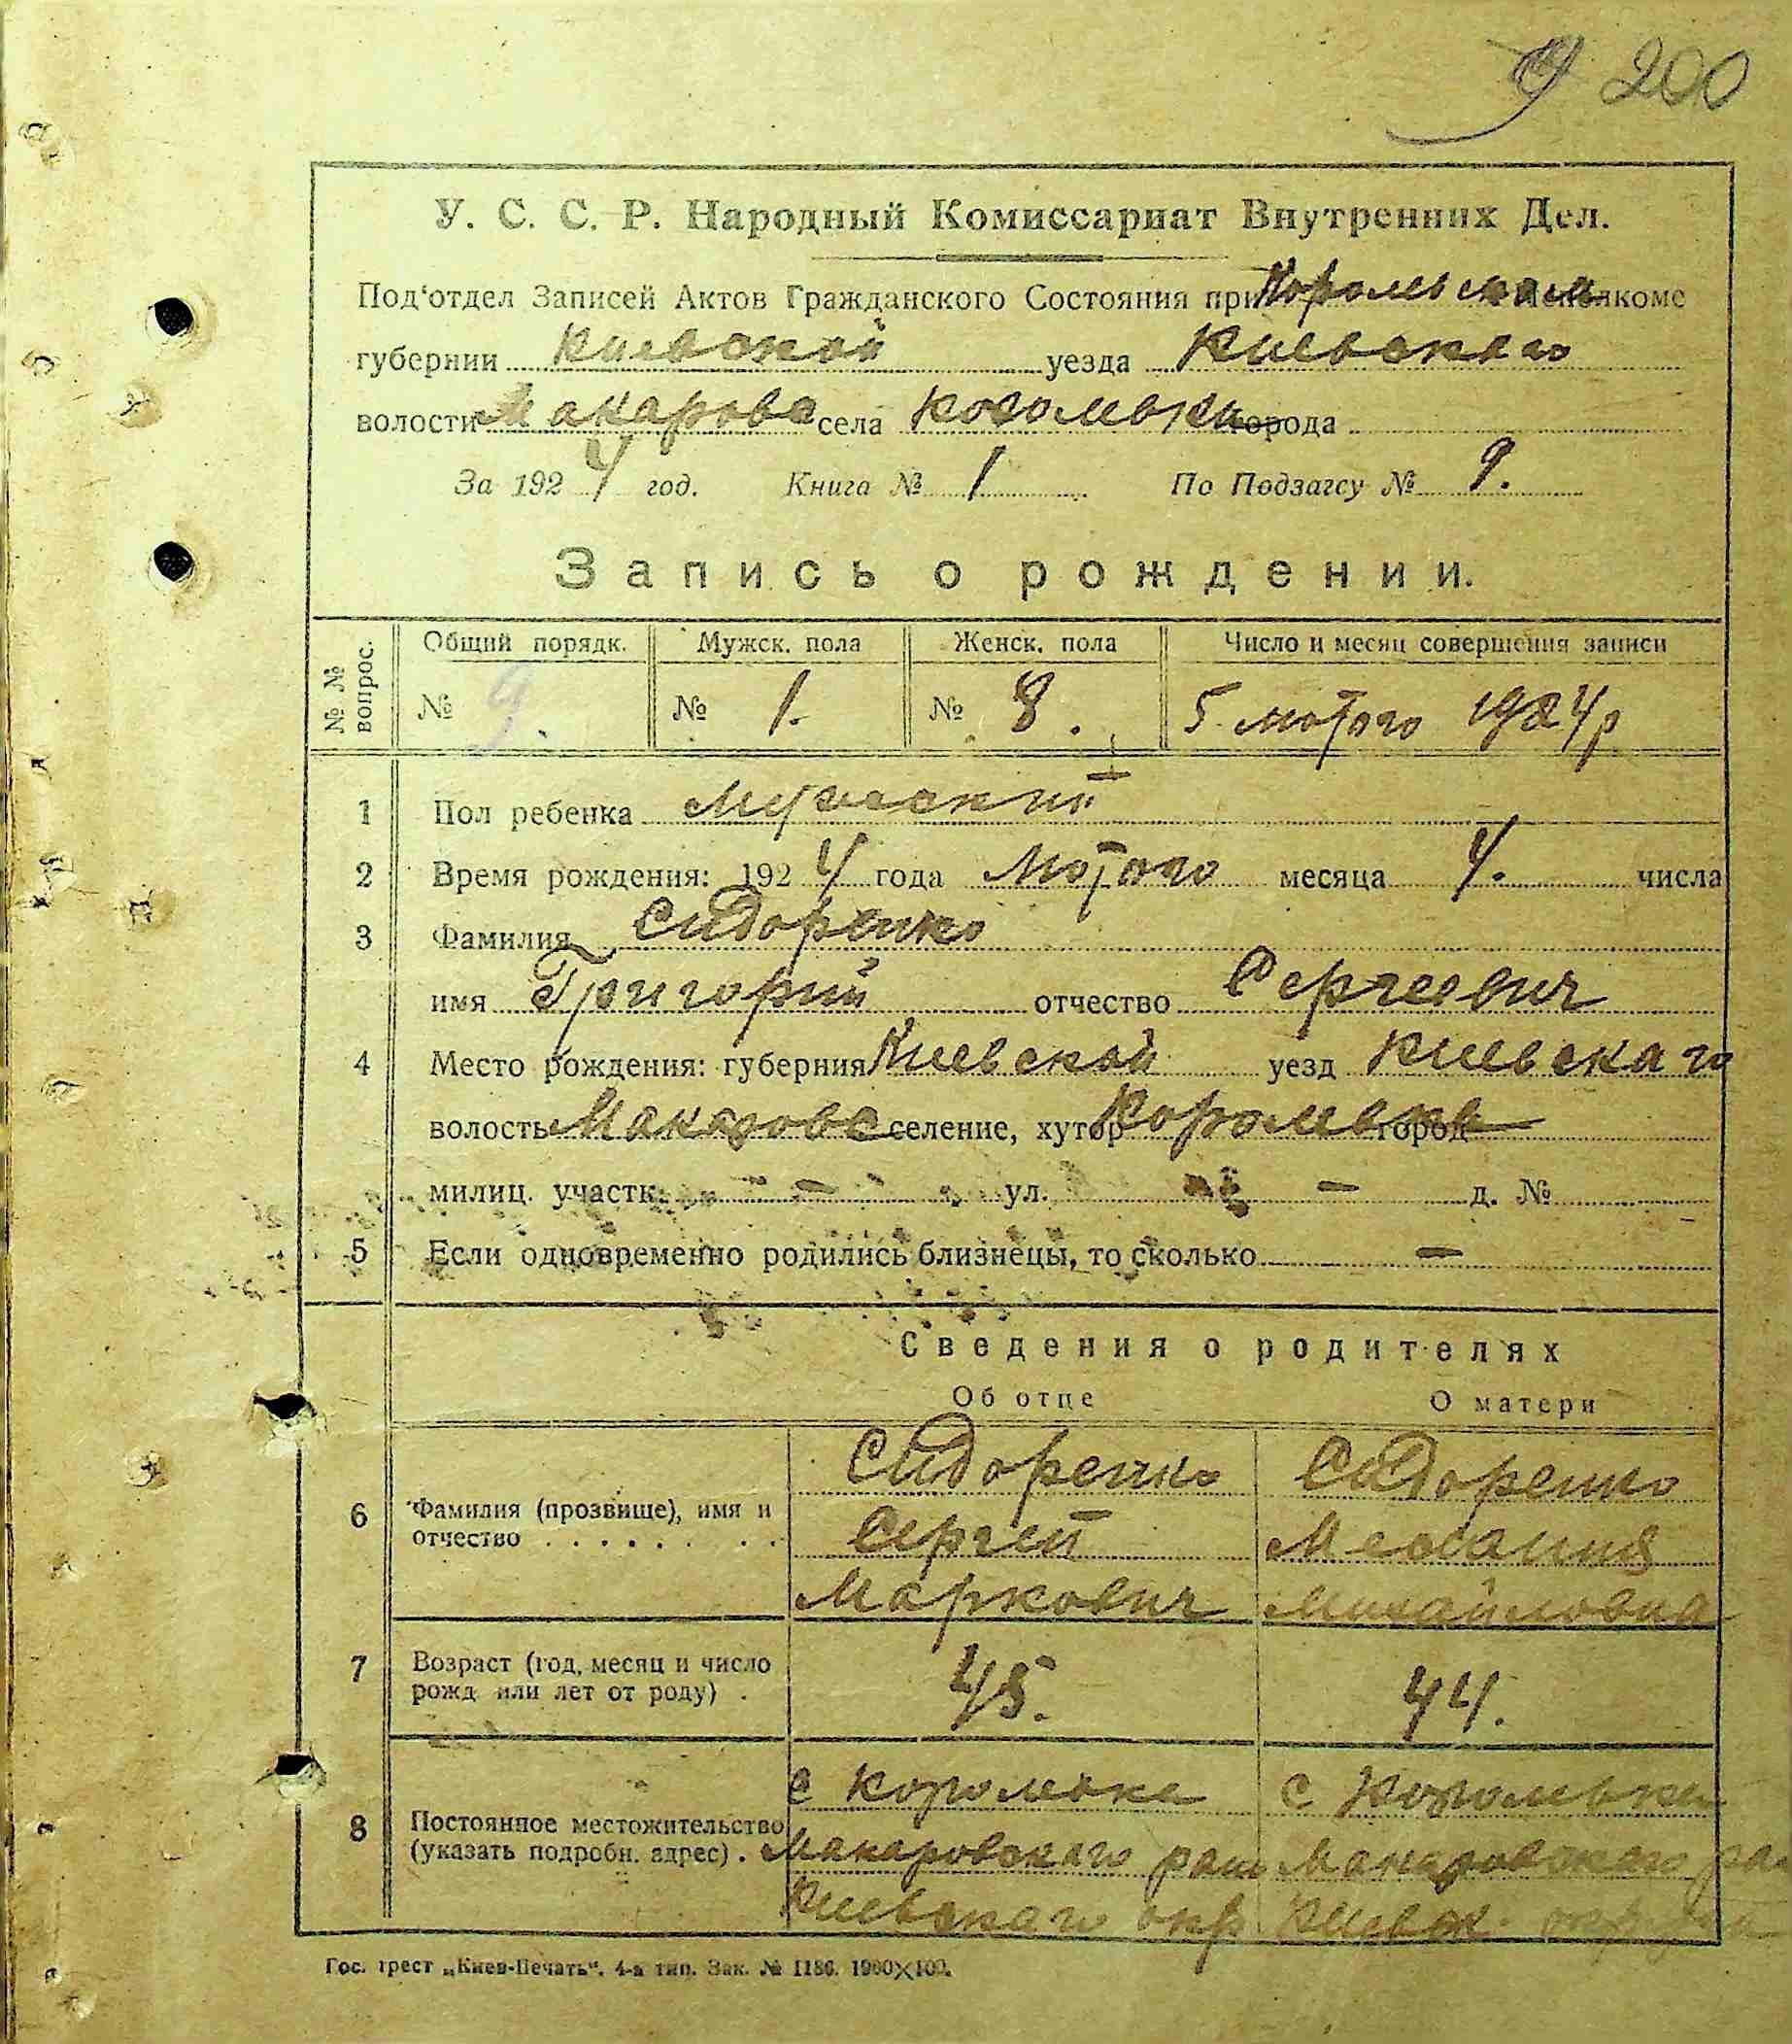 9 200
У. С. С. Р. Народный Комиссариат Внутренних Дел.
Под'отдел Записей Актов Гражданского Состояния при Королевском
губернии Киевской уезда Киевскаго
волости Макаровс села города
За 1924 год. Книга № 1 По Подзагсу № 9.
Запись о рождении.
№ № вопрос. Общий порядк. Мужск. пола Женск. пола Число и месяц совершения записи
№ 9. № 1. № 8. 5 лютого 1924 р
1 Пол ребенка Мужский
2 Время рождения: 1924 года Лютого месяца 4. числа
3 Фамилия Сидоренко
имя Григорий отчество Сергеевич
4 Место рождения: губерния Киевской уезд Киевскаго
волость Макаровс селение, хутор Королевка город
милиц. участк. - ул. - д. №
5 Если одновременно родились близнецы, то сколько -
Сведения о родителях
Об отце О матери
6 Фамилия (прозвище), имя и отчество . . . . . . . . Сидоренко Сидоренко
Сергей Мелания
Маркович Михайловна
7 Возраст (год, месяц и число рожд или лет от роду) . 45. 44.
8 Постоянное местожительство (указать подробн. адрес) . с Королевка с Королевка
Макаровскаго рай Макаровскаго
Киевскаго окр Киевск. округа
Гос. трест „Киев-Печать“. 4-а тип. Зак. № 1186. 1900×100.